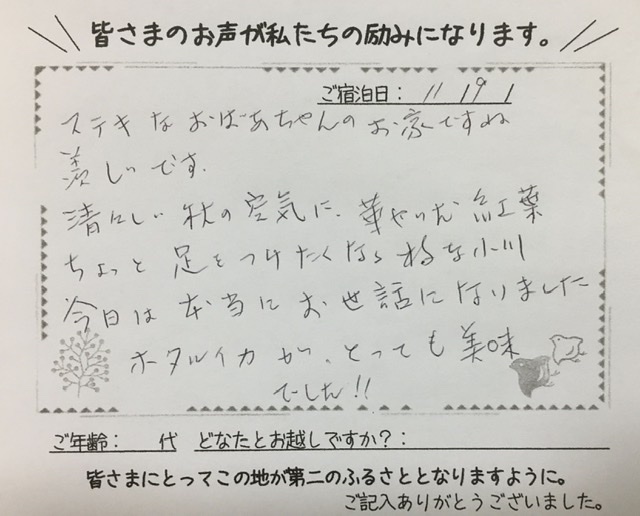 皆さまのお声が私たちの励みになります。
ご宿泊日: 11/9/
ステキなおばあちゃんのお家ですね
羨しいです.
清々しい秋の空気に、華やいだ紅葉
ちょっと足をつけたくなる様な小川
今日は本当にお世話になりました
ホタルイカが、とっても美味
でした!!
ご年齢: 代 どなたとお越しですか?:
皆さまにとってこの地が第二のふるさととなりますように。
ご記入ありがとうございました。